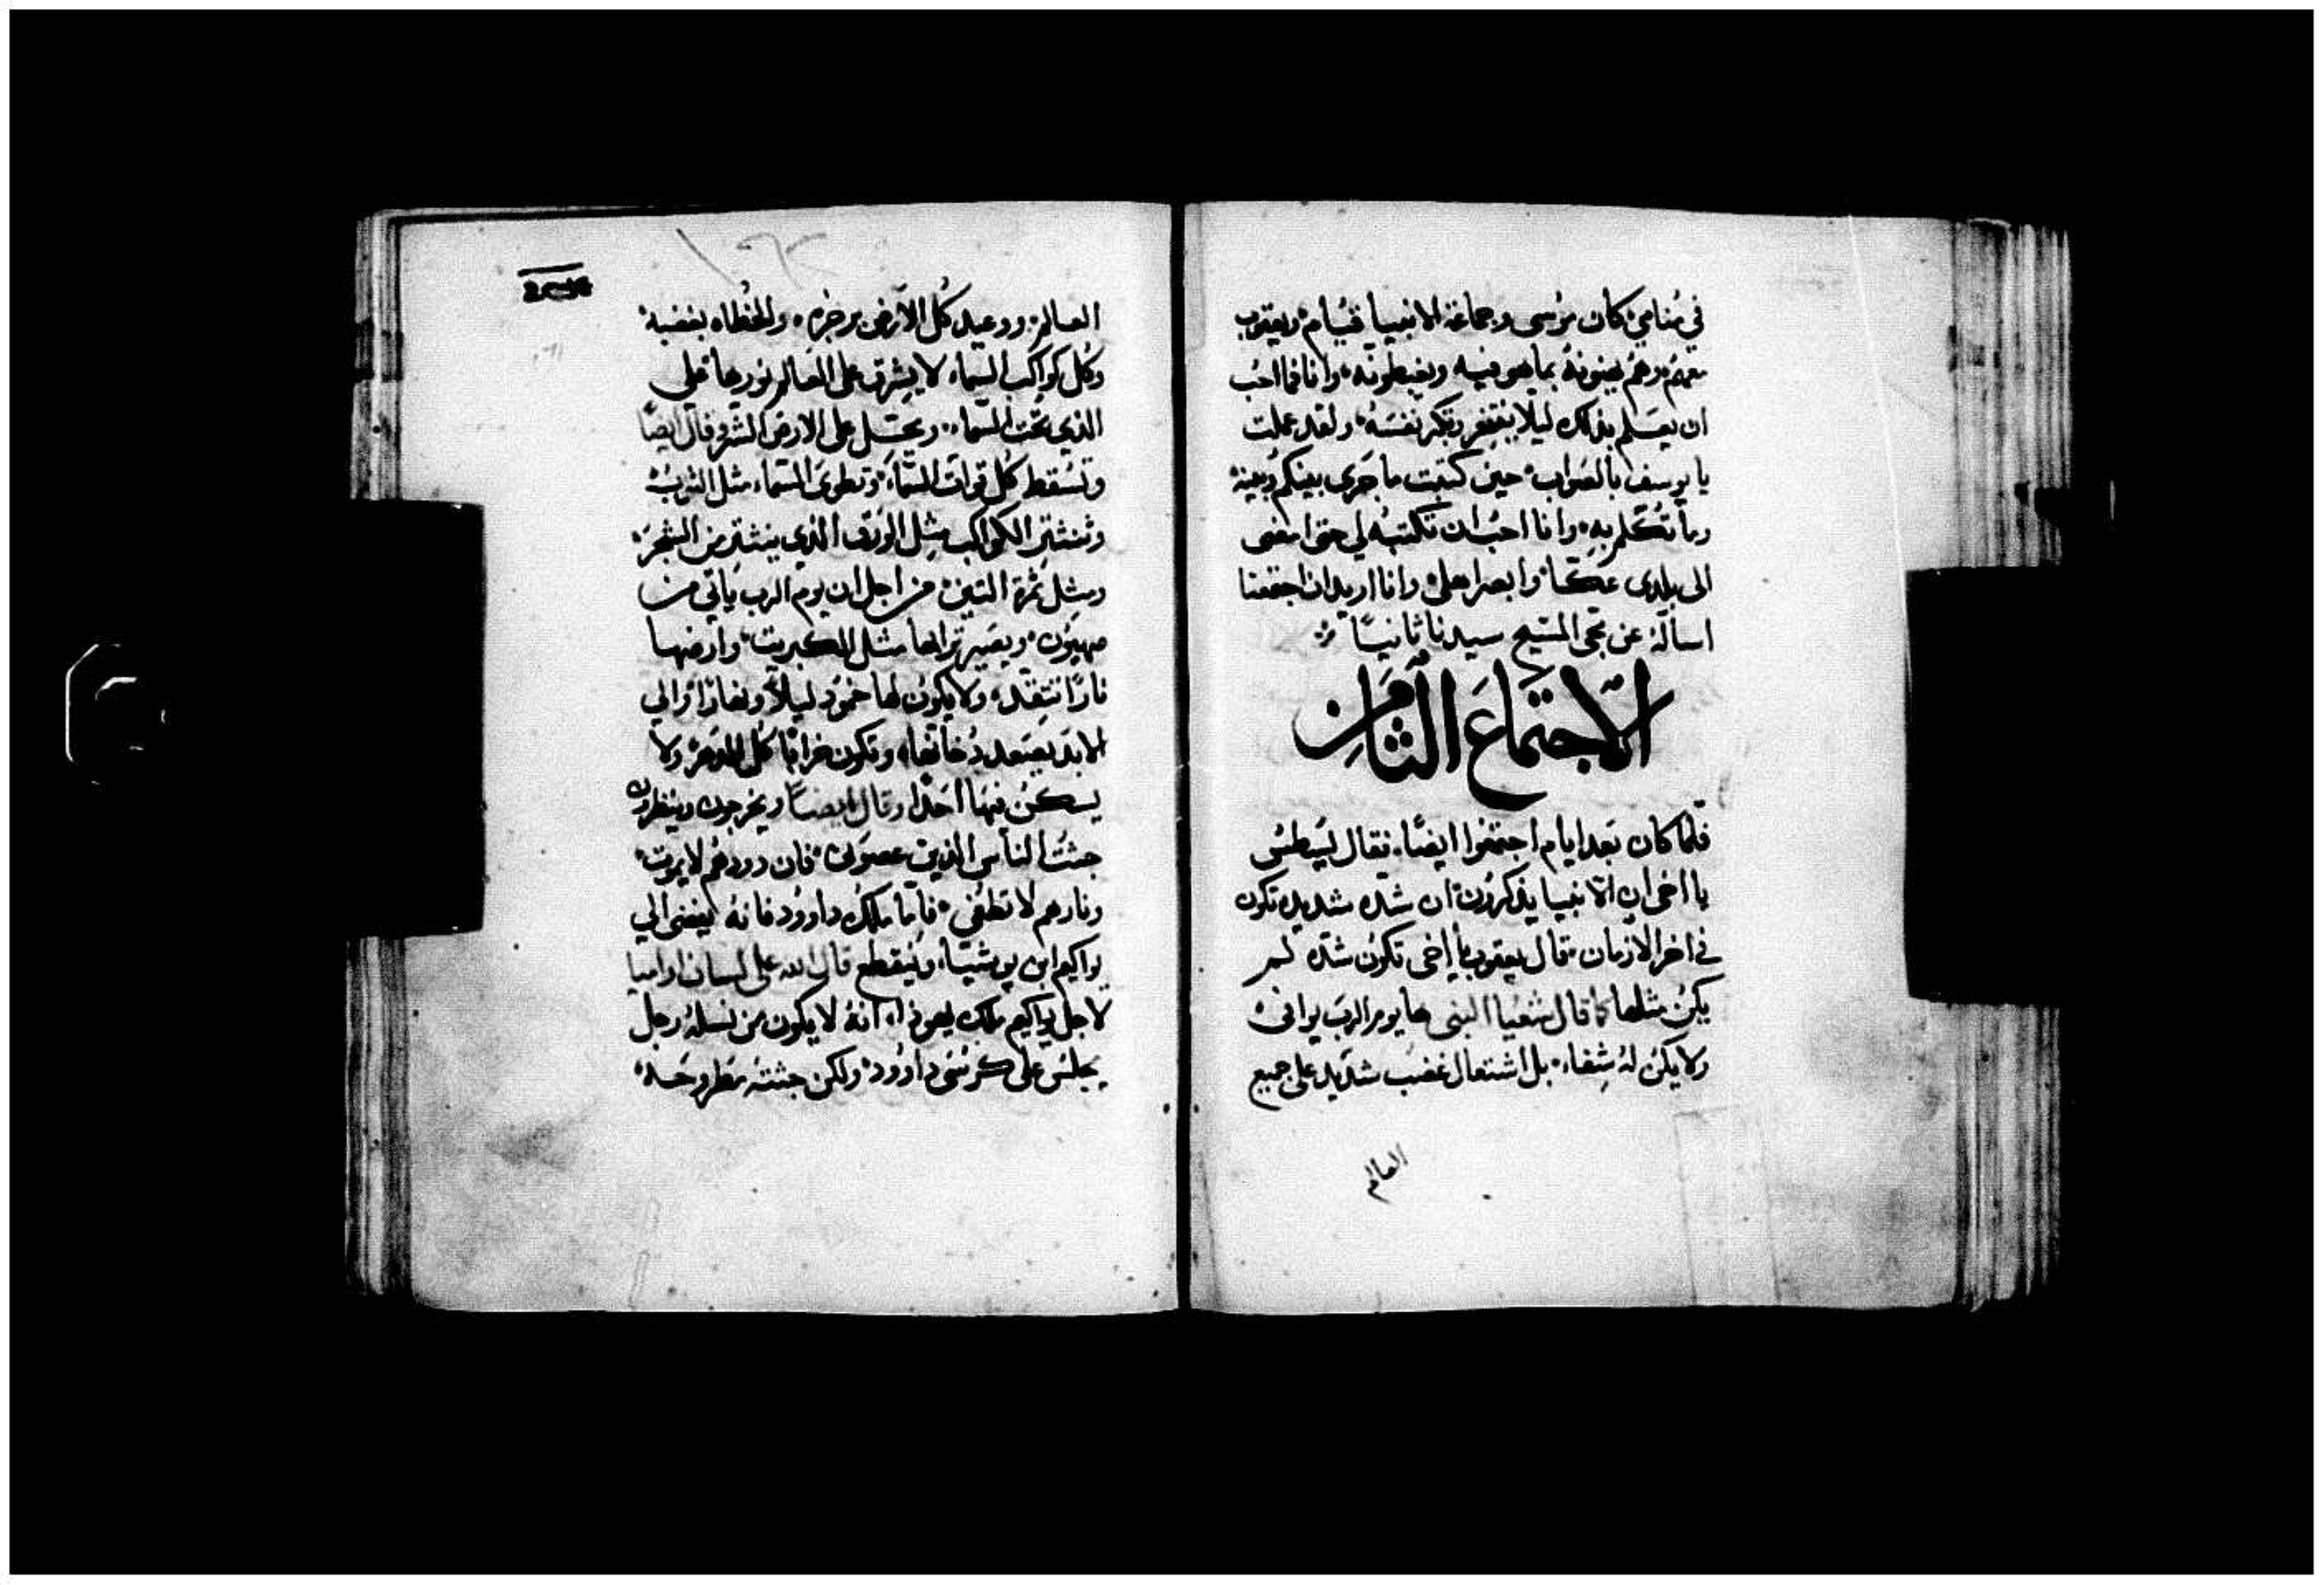 في منامي كان موسى وجماعة الانبيا قيام ويعقوب
معهم وهم يهنونه بما هو فيه ويغبطونه وانا فما احب
ان يعلم بذلك ليلا ينتفخ وتكبر نفسه ولقد عملت
يا يوسف بالصواب حين كتبت ما جرى بينكم وبينه
وما تكلم به وانا احب ان تكتبه لي حتى امضى
الى بلدى عكا وابصر اهلى وانا اريد ان اجتمعنا
اساله عن مجى المسيح سيدنا ثانيا
الاجتماع الثامن
فلما كان بعد ايام اجتمعوا ايضا فقال ليسطس
يا اخى ان الانبيا يذكرون ان شده شديده تكون
في اخر الازمان فقال يعقوب يا اخى تكون شده لم
يكن مثلها كما قال شعيا النبى ها يوم الرب يوافى
ولا يكن له شفاء بل اشتعال غضب شديد على جميع
العالم
العالم ووعيد كل الارض برجزه والخطاه بغضبه
وكل كواكب السماء لا يشرق على العالم نورها على
الذي تحت السماء ويحل على الارض الشر وقال ايضا
وتسقط كل قوات السماء وتطوى السماء مثل الثوب
وتنتثر الكواكب مثل الورق الذي ينتثر من الشجر
ومثل ثمرة التين من اجل ان يوم الرب ياتي من
صهيون ويصير ترابها مثل الكبريت وارضها
نارا تتقد ولا يكون لها خمود ليلا ونهارا والي
الابد يصعد دخانها وتكون خرابا كل الدهر ولا
يسكن فيها احدا وقال ايضا ويخرجون وينظرون
جثت الناس الذين عصونى فان دودهم لا يموت
ونارهم لا تطفى فاما ملك داوود فانه ليفنى الي
يواكيم ابن يوشيا وينقطع قال الله على لسان ارميا
لاجل يواكيم ملك يهوذا انه لا يكون من نسله رجل
يجلس على كرسى داوود ولكن جثته مطروحه